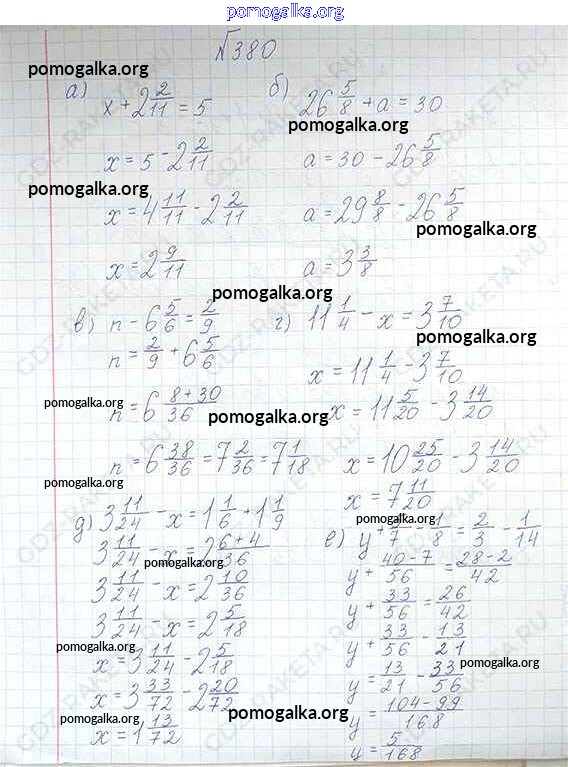 pomogalka.org
№380
pomogalka.org
а) x + 2 2/11 = 5
x = 5 - 2 2/11
pomogalka.org
x = 4 11/11 - 2 2/11
x = 2 9/11
б) 26 5/8 + a = 30
pomogalka.org
a = 30 - 26 5/8
a = 29 8/8 - 26 5/8
a = 3 3/8
pomogalka.org
в) n - 6 5/6 = 2/9
n = 2/9 + 6 5/6
pomogalka.org
n = 6 8+30/36
pomogalka.org
n = 6 38/36 = 7 2/36 = 7 1/18
г) 11 1/4 - x = 3 7/10
pomogalka.org
x = 11 1/4 - 3 7/10
x = 11 5/20 - 3 14/20
x = 10 25/20 - 3 14/20
x = 7 11/20
pomogalka.org
д) 3 11/24 - x = 1 1/6 + 1 1/9
3 11/24 - x = 2 6+4/36
pomogalka.org
3 11/24 - x = 2 10/36
3 11/24 - x = 2 5/18
pomogalka.org
x = 3 11/24 - 2 5/18
x = 3 33/72 - 2 20/72
pomogalka.org
x = 1 13/72
е) y + 5/7 - 1/8 = 2/3 - 1/14
pomogalka.org
y + 40-7/56 = 28-2/42
y + 33/56 = 26/42
y + 33/56 - 13/21
pomogalka.org
y = 13/21 - 33/56
pomogalka.org
y = 104-99/168
y = 5/168
GDZ-RAKETA.RU